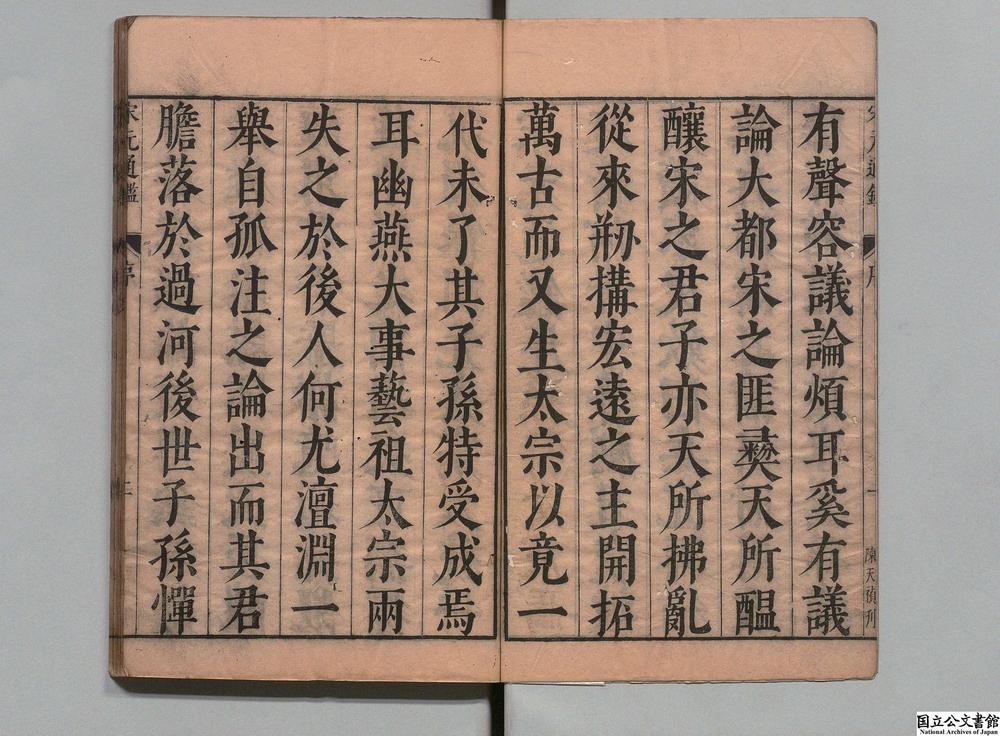 有聲容議論煩耳奚有議
論大都宋之匪彜天所醞
釀宋之君子亦天所拂亂
從來剏搆宏遠之主開拓
萬古而又生太宗以竟一
代未了其子孫特受成焉
耳幽燕大事藝祖太宗兩
失之於後人何尤澶淵一
舉自孤注之論出而其君
膽落於過河後世子孫憚
宋元通鑑
序
一
陳天禎刊
宋元通鑑
序
二
国立公文書館
National Archives of Japan